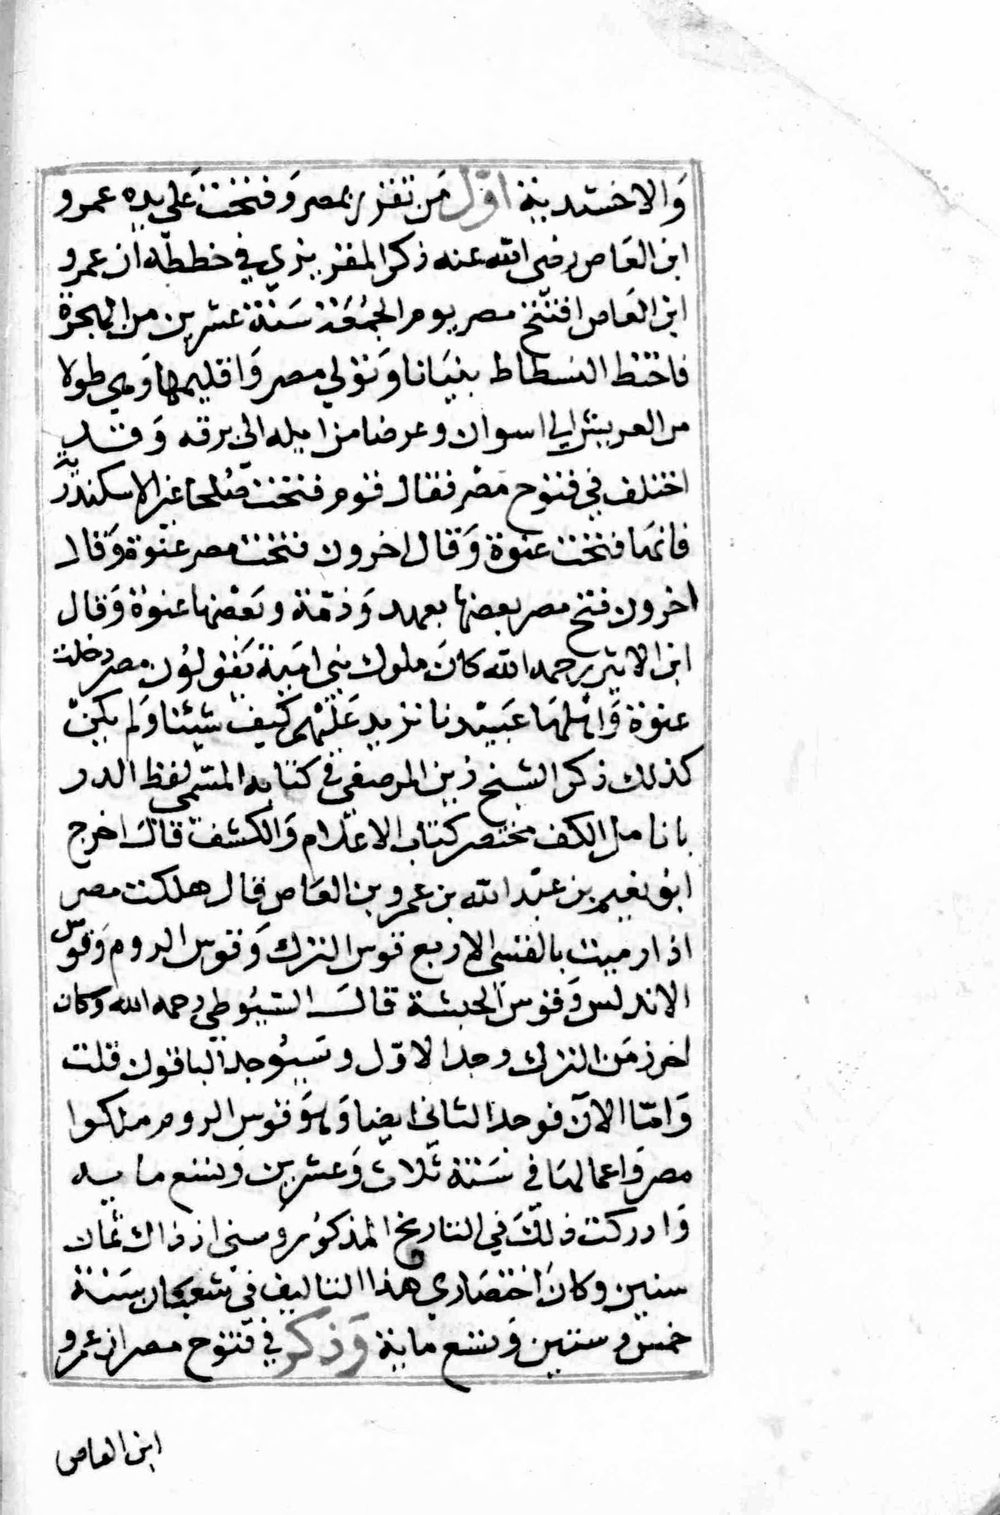 والاخشديية اول من تقرر بمصر وفتحت على يده عمرو
ابن العاص رضى الله عنه ذكر المقريزي في خططه ان عمرو
ابن العاص افتتح مصر يوم الجمعة سنة عشرين من الهجرة
فاختط الفسطاط بنيانا وتولي مصر واقليمها وهي طولا
من العريش الي اسوان وعرضا من ايله الى برقه وقد
اختلف في فتوح مصر فقال قوم فتحت صلحا غير الاسكندرية
فانها فتحت عنوة وقال اخرون فتحت مصر عنوة وقال
اخرون فتح مصر بعضها بعهد وذمة وبعضها عنوة وقال
ابن الاثير رحمه الله كان ملوك بني امية يقولون مصر دخلت
عنوة واهلها عبيدنا نزيد عليهم كيف شيئنا ولم يكن
كذلك ذكر الشيخ زين المرصفي في كتابه المسمى لفظ الدرر
بانامل الكف مختصر كتاب الاعلام والكشف قال اخرج
ابو نعيم بن عبد الله بن عمرو بن العاص قال هلكت مصر
اذا رميت بالقسى الاربع قوس الترك وقوس الروم وقوس
الاندلس وقوس الحبشة قال السيوطي رحمه الله وكان
اخر زمن الترك وجد الاول وسيوجد الباقون قلت
واما الآن فوجد الثاني ايضا وهو قوس الروم ملكوا
مصر واعمالها في سنة ثلاث وعشرين وتسع مايه
وادركت ذلك في التاريخ المذكور وسنى اذ ذاك ثمان
سنين وكان اختصاري هذا التاليف في شعبان سنة
خمس وستين وتسع ماية وذكر في فتوح مصر ان عمرو
ابن العاص